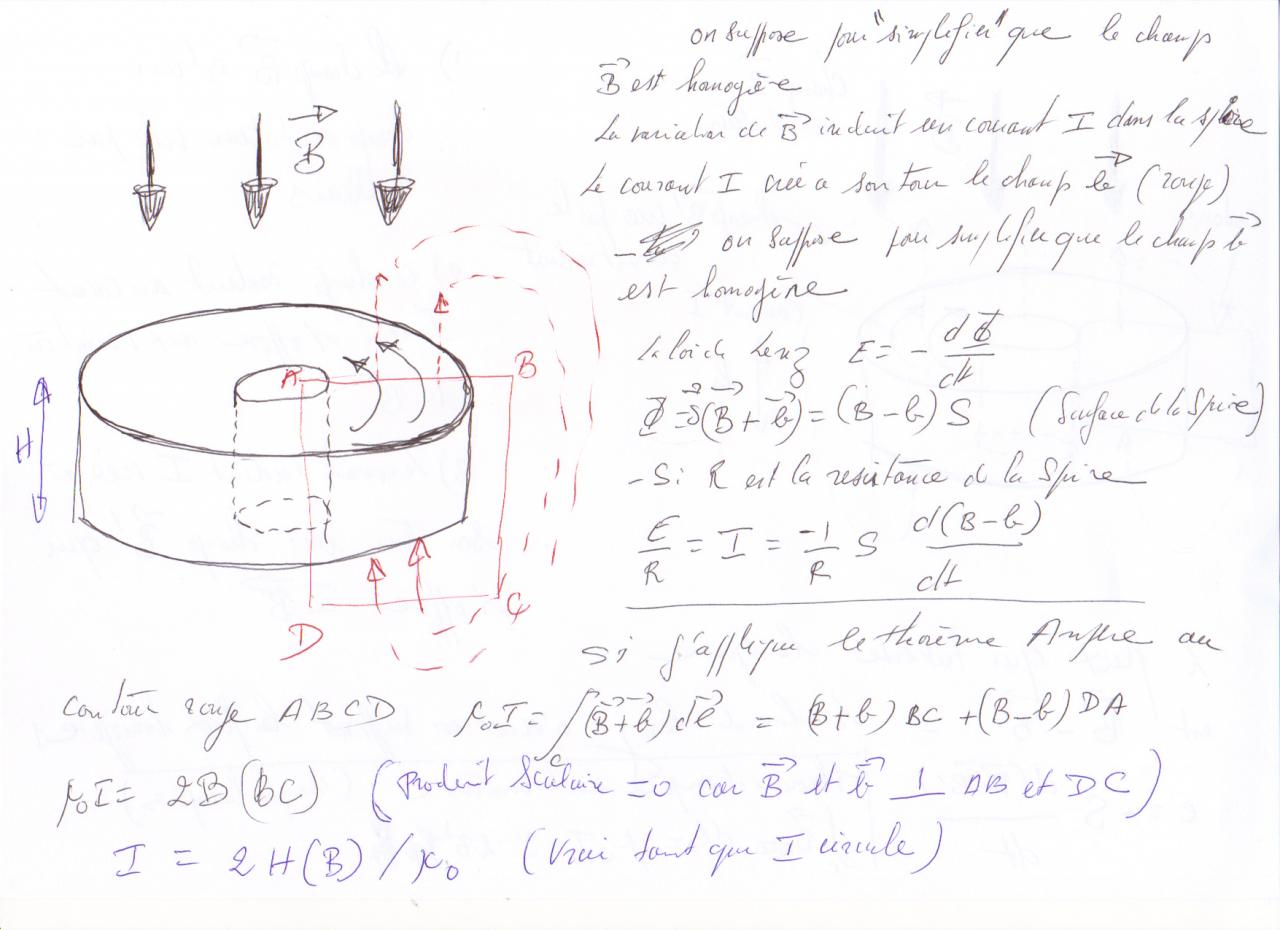 on suppose pour "simplifier" que le champ
B est homogène
La variation de B induit un courant I dans la spire
Le courant I crée a son tour le champ b (rouge)
- on suppose pour simplifier que le champ b
est homogène
La loi de Lenz E = - dΦ/dt
Φ = S(B + b) = (B - b) S (Surface de la Spire)
- Si R est la resistance de la Spire
E/R = I = -1/R S d(B-b)/dt
Si j'applique le théorème Ampère au
contour rouge ABCD μ₀I = ∫c (B+b) dl = (B+b) BC + (B-b) DA
μ₀I = 2B (BC) (Produit Scalaire = 0 car B et b ⊥ AB et DC)
I = 2H(B)/μ₀ (Vrai tant que I circule)
B
A
B
H
C
D